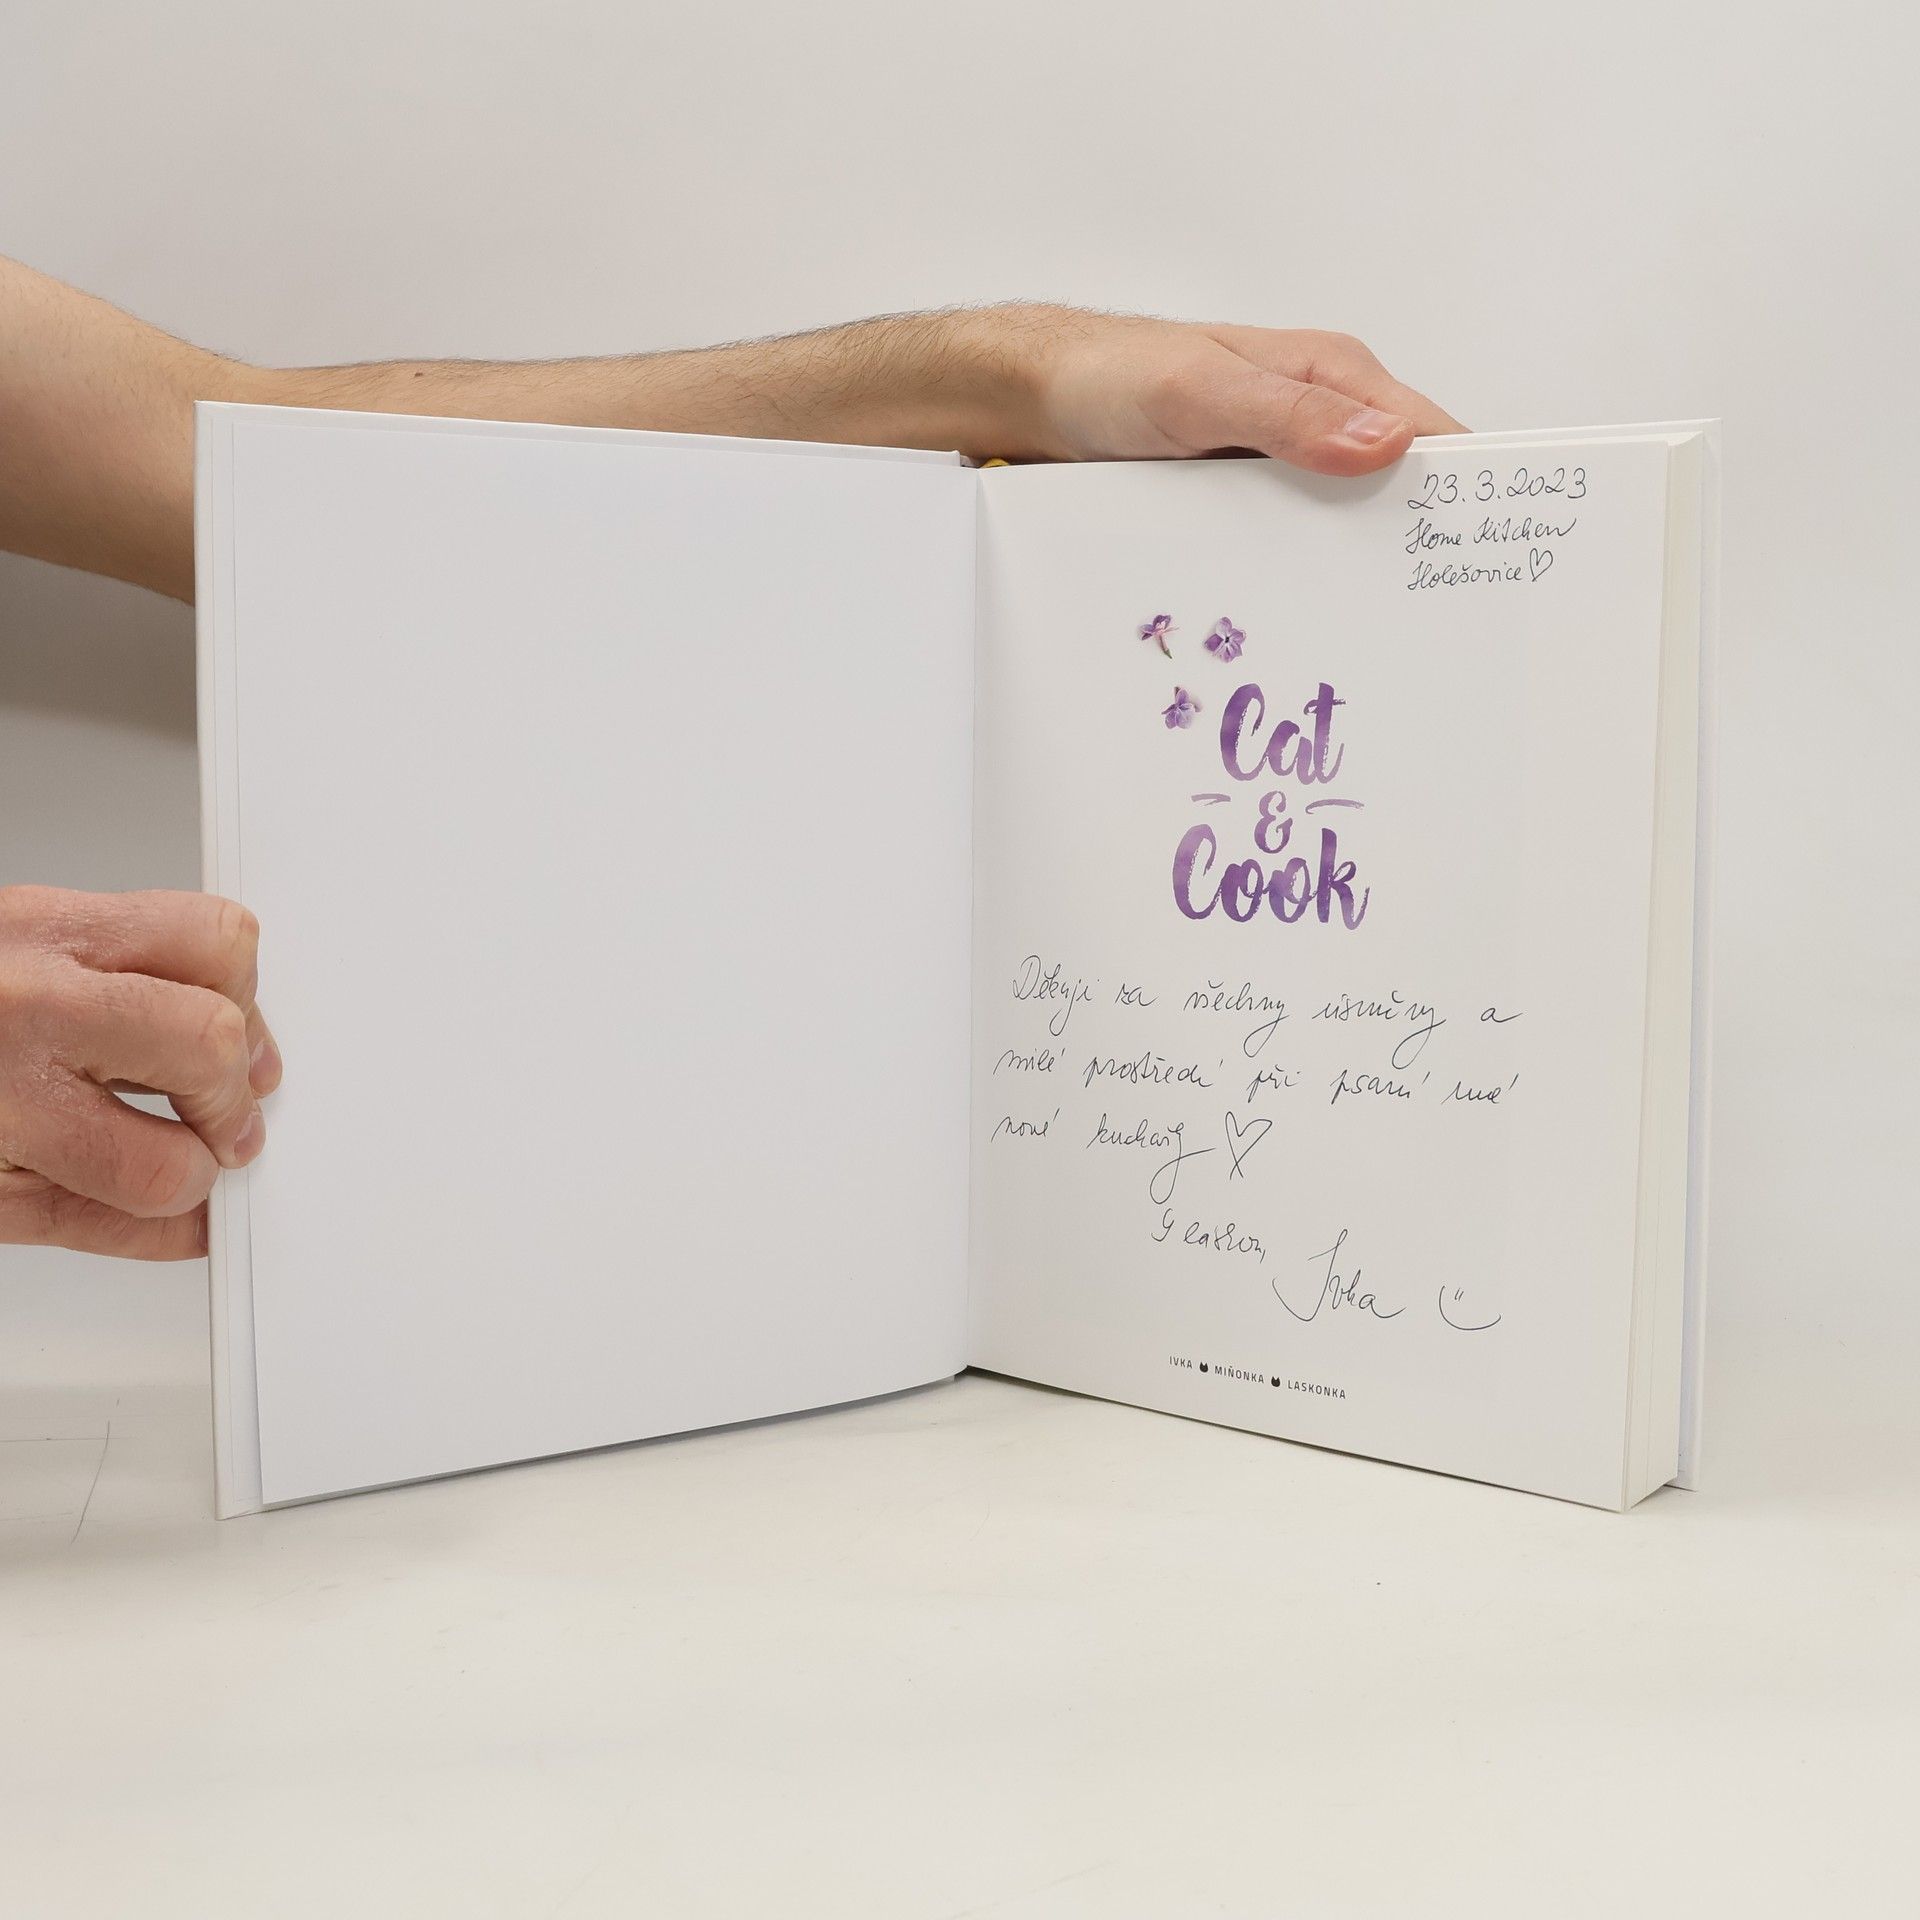 23.3.2023
Home Kitchen
Holešovice
Cat
&
Cook
Děkuji za všechny úsměvy a
milé prostředí při psaní mé
nové kuchařky
S láskou,
Ivka
IVKA MIŇONKA LASKONKA